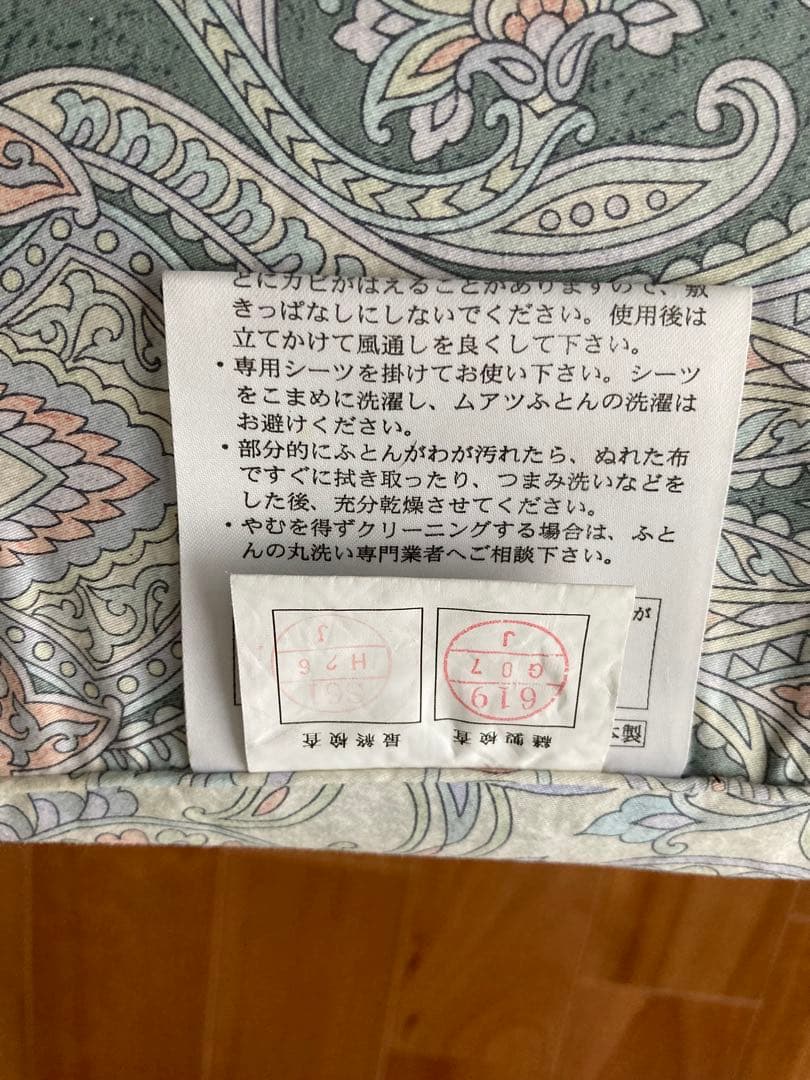 とにカビがはえることがありますので、敷
きっぱなしにしないでください。使用後は
立てかけて風通しを良くして下さい。
・専用シーツを掛けてお使い下さい。シーツ
をこまめに洗濯し、ムアツふとんの洗濯は
お避けください。
・部分的にふとんがわが汚れたら、ぬれた布
ですぐに拭き取ったり、つまみ洗いなどを
した後、充分乾燥させてください。
・やむを得ずクリーニングする場合は、ふと
んの丸洗い専門業者へご相談下さい。
が
製
縫製検査
619
G07
J
最終検査
H26
J